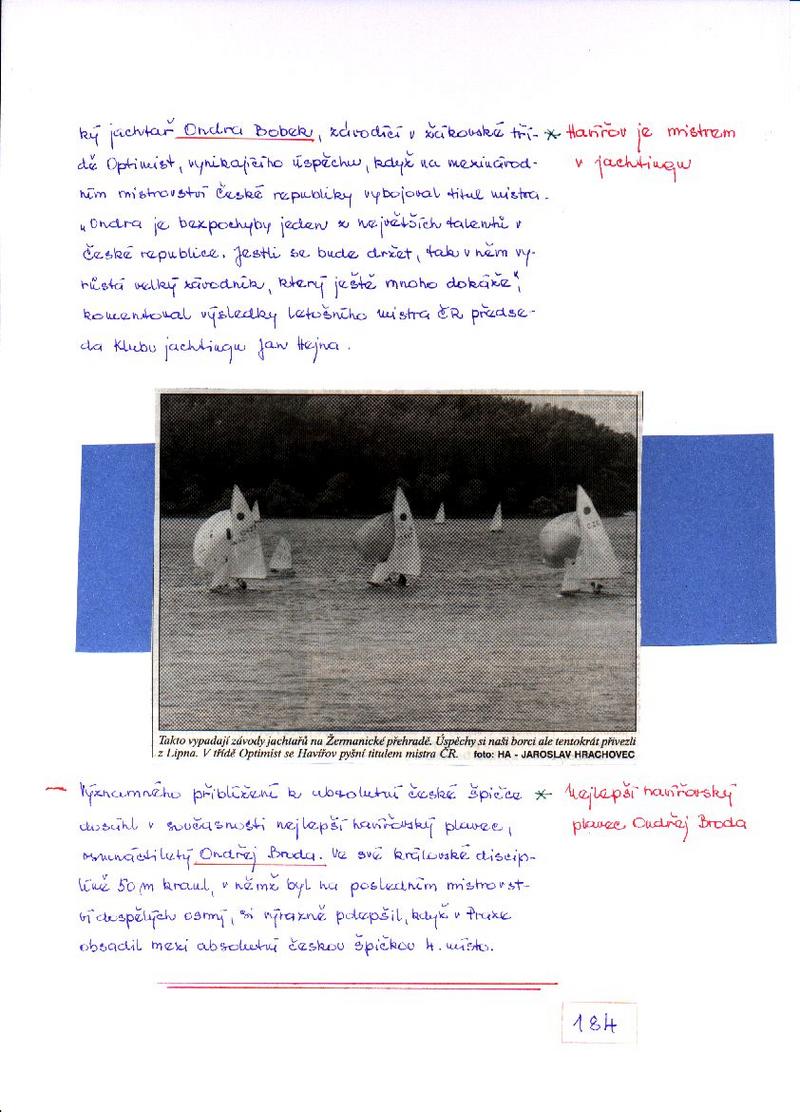 ký jachtař Ondra Bobek, závodící v žákovské tří-
* Havířov je mistrem
v jachtingu
dě Optimist, vynikajícího úspěchu, když na mezinárod-
ním mistrovství České republiky vybojoval titul mistra.
„Ondra je bezpochyby jeden z největších talentů v
České republice. Jestli se bude držet, tak v něm vy-
růstá velký závodník, který ještě mnoho dokáže",
komentoval výsledky letošního mistra ČR předse-
da Klubu jachtingu Jan Hejna.
Takto vypadají závody jachtařů na Žermanické přehradě. Úspěchy si naši borci ale tentokrát přivezli
z Lipna. V třídě Optimist se Havířov pyšní titulem mistra ČR. foto: HA - JAROSLAV HRACHOVEC
– Významného přiblížení k absolutní české špičce
* Nejlepší havířovský
plavec Ondřej Broda
dosáhl v současnosti nejlepší havířovský plavec,
osmnáctiletý Ondřej Broda. Ve své královské discip-
líně 50 m kraul, v němž byl na posledním mistrovst-
ví dospělých osmý, si výrazně polepšil, když v Praze
obsadil mezi absolutní českou špičkou 4. místo.
184